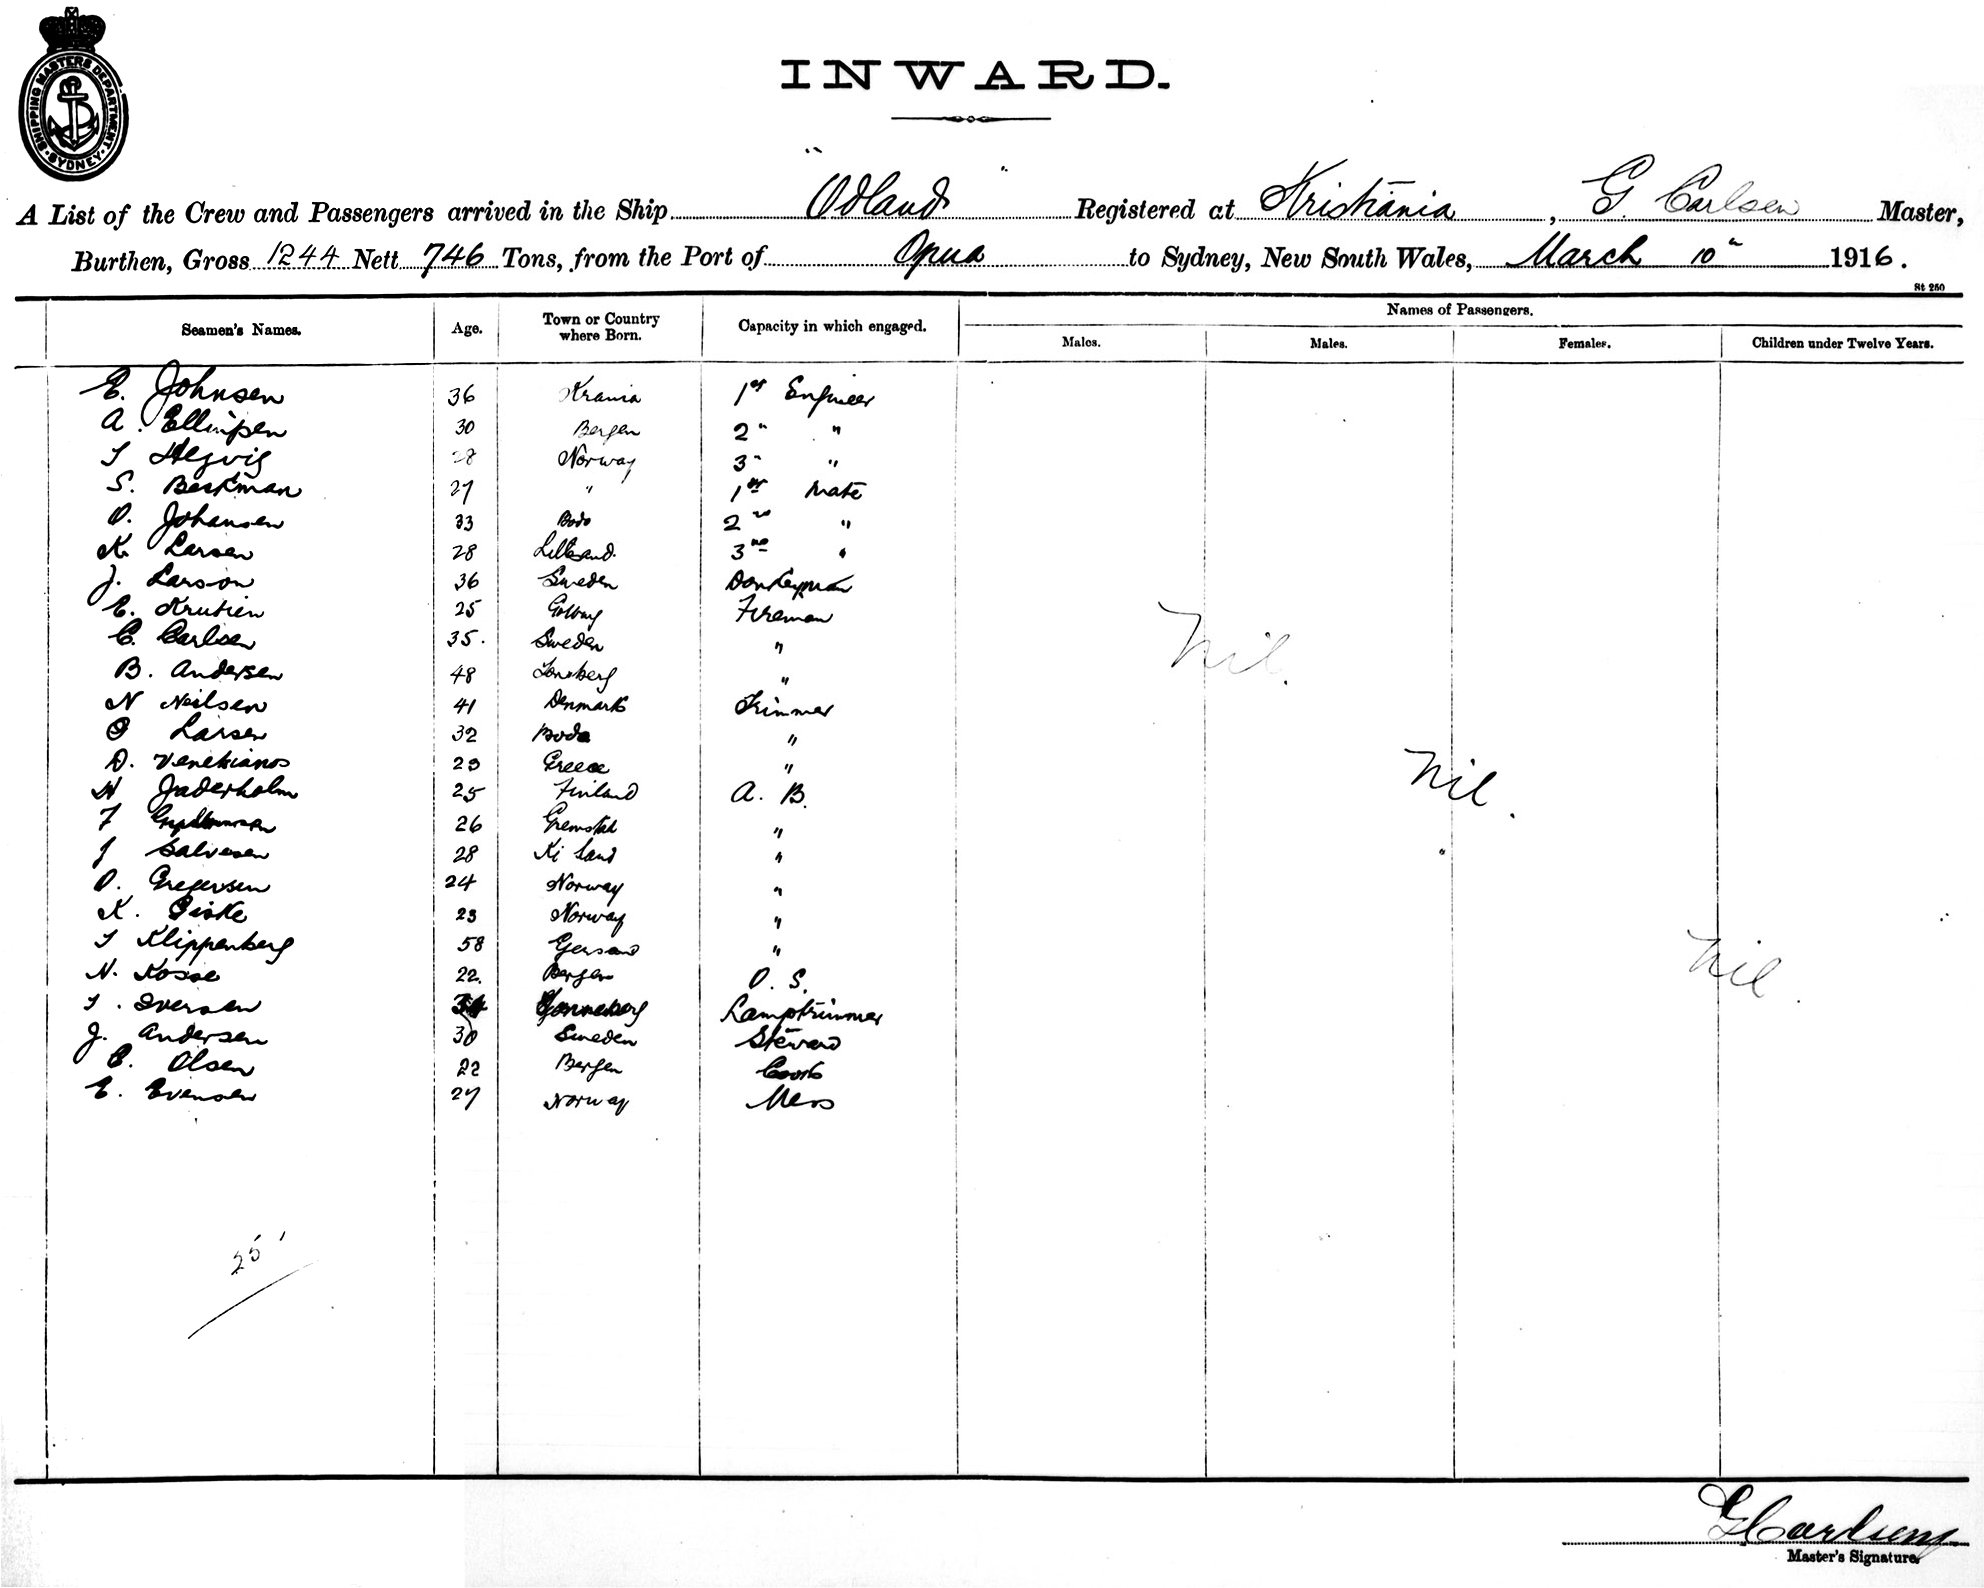 SHIPPING MASTERS DEPARTMENT
SYDNEY
INWARD.
A List of the Crew and Passengers arrived in the Ship "Odland" Registered at Kristiania, G. Carlsen Master,
Burthen, Gross 1244 Nett 746 Tons, from the Port of Opua to Sydney, New South Wales, March 10" 1916.
St 250
Seamen's Names. Age. Town or Country where Born. Capacity in which engaged. Names of Passengers.
Males. Males. Females. Children under Twelve Years.
E. Johnsen 36 Krania 1st Engineer
A. 30 Bergen 2" "
28 Norway 3" "
S. Beckman 27 " 1st Mate
O. Johansen 33 Bodo 2nd "
K. Larsen 28 Lillesand. 3rd "
J. Larson 36 Sweden Donkeyman
E. 25 Fireman
C. Carlsen 35. Sweden "
B. Andersen 48 "
N Neilsen 41 Denmark Trimmer
Larsen 32 Bodo "
D. Venetsianos 23 Greece "
Jaderholm 25 Finland A. B.
F 26 "
J Salvesen 28 Ki Sand "
O. Gregersen 24 Norway "
K. Giske 23 Norway "
Klippenberg 58 "
N. Kosse 22. Bergen O. S.
Iversen 34 Lamptrimmer
J. Andersen 30 Sweden Steward
Olsen 22 Bergen Cook
E. Evensen 27 Norway Mess
Nil.
Nil.
Nil.
25
G Carlsen
Master's Signature